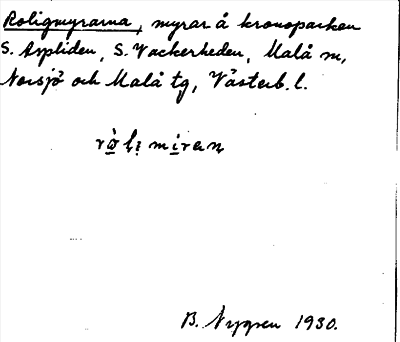 Roligmyrarna, myrar å kronoparken
S. Aspliden, S. Vackerheden, Malå sn,
Norsjö och Malå tg, Västerb. l.
B. Nygren 1930.